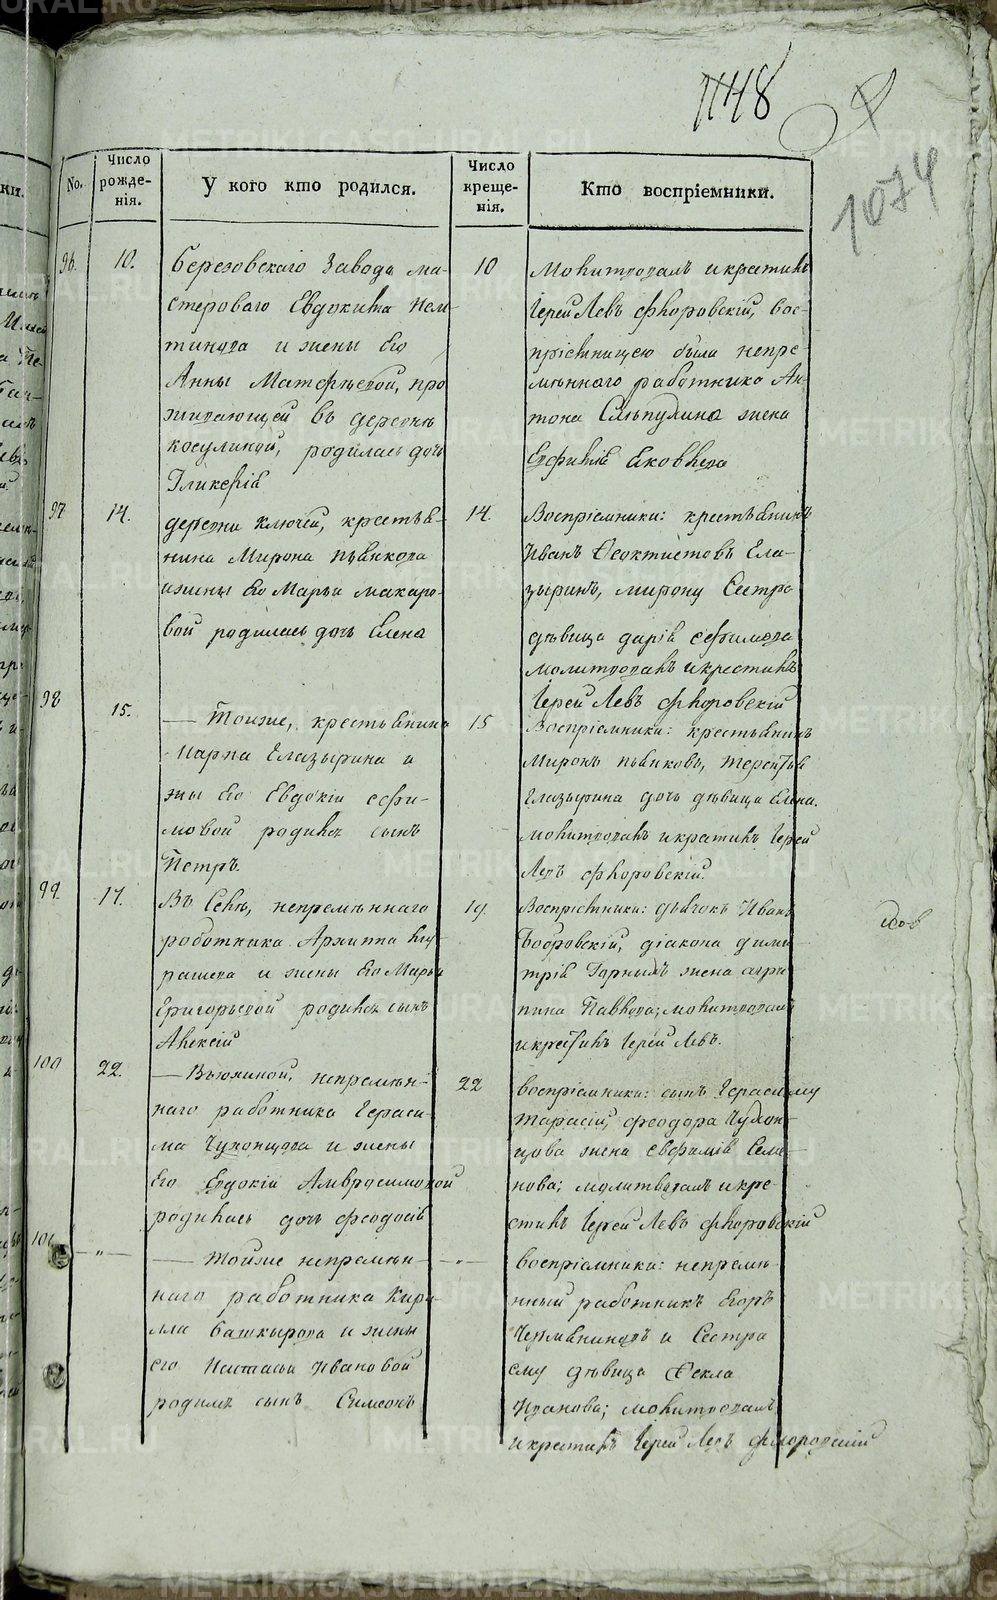 1148
1074
No.
Число рожде-нія.
У кого кто родился.
Число креще-нія.
Кто воспріемники.
96. 10.
Березовскаго Завода ма-
стероваго Евдокима
и жены Его
Анны Матфѣевой, про
живающей въ деревнѣ
косулиной, родилась дочь
Гликерія
10
Молитвовалъ и крестилъ
Іерей Левъ Флоровскій, вос-
пріемницею была непре
мѣннаго работника Ан-
тона Слѣпухина жена
Евфимія Яковлева
97 14.
деревни Ключей, крестья-
нина Мирона пьянкова
и жены Его Марьи макаро-
вой родилась дочь Елена
14.
Воспріемники: крестьянинъ
Иванъ Феоктистовъ Гла-
зыринъ, мирону Сестра
дѣвица дарія ефимова
молитвовалъ и крестилъ
Іерей Левъ Флоровскій
98 15.
— Тойже, крестьянина
Карпа Глазырина и
жны Его Евдокіи ефи-
мовой родился сынъ
Петръ.
15
Воспріемники: крестьянинъ
Миронъ пьянковъ, терентья
Глазырина дочь дѣвица Елена.
молитвовалъ и крестилъ Іерей
Левъ Флоровскій
99. 17.
Въ Селѣ, непремѣннаго
работника Архиппа
и жены Его Марьи
Григорьевой родился сынъ
Алексій
19.
Воспріемники: дьячокъ Иванъ
Бобровскій, діакона дими
трія Горныхъ жена агри
пина Павлова; молитвовалъ
и крестилъ Іерей Левъ.
100 22.
— Вьюхиной, непремѣн-
наго работника Гераси-
ма Чухонцова и жены
Его Евдокіи Амвросимовой
родилась дочь Феодосія
22
воспріемники: сынъ Герасиму
тарасій, феодора Чухон-
цова жена евфимія Семе-
нова; молитвовалъ и кре-
стилъ Іерей Левъ Флоровскій
101 —"—
— тойже непремѣн-
наго работника Кири-
лла башкырова и жены
его Настасьи Ивановой
родился сынъ Симеонъ
—"—
воспріемники: непремѣ-
нный работникъ Егоръ
и Сестра
ему дѣвица Фекла
Иванова; молитвовалъ
и крестилъ Іерей Левъ Флоровскій
METRIKI.GASO-URAL.RU